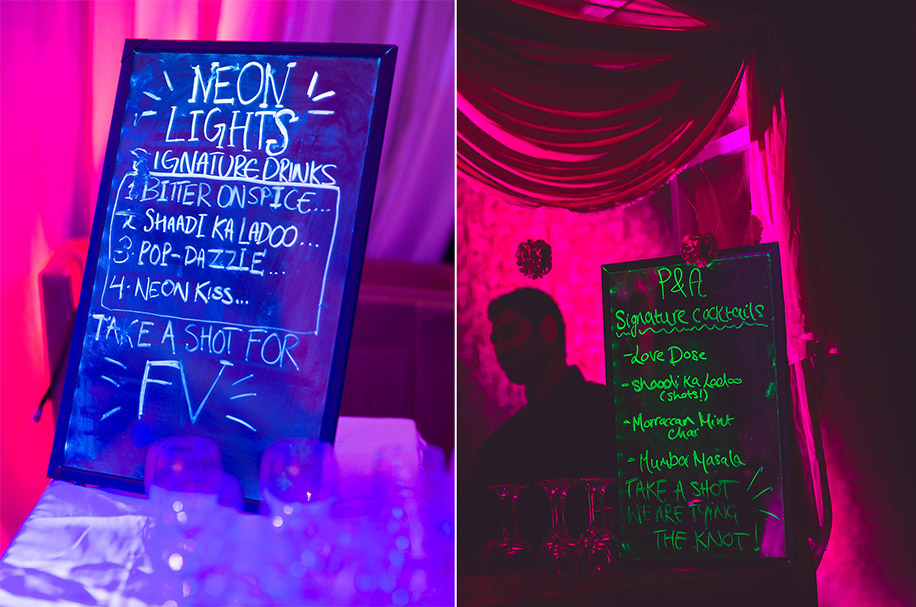 NEON
LIGHTS
SIGNATURE DRINKS
1. BITTER ON SPICE...
2. SHAADI KA LADOO...
3. POP-DAZZLE...
4. NEON KISS...
TAKE A SHOT FOR
FV
P&A
Signature Cocktails
- Love Dose
- Shaadi Ka Ladoo
(shots!)
- Morraccan Mint
Chai
- Mumbai Masala
TAKE A SHOT
WE ARE TYING
THE KNOT!